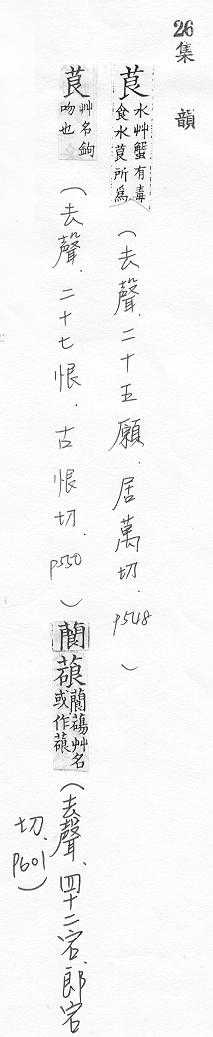 26 集 韻
茛 水艸蟹有毒
食水茛所為 (去聲.二十五願.居萬切.p548)
茛 艸名鉤
吻也 (去聲.二十七恨.古恨切.p550)
䕞蒗 䕞蕩艸名
或作蒗 (去聲、四十二宕、郎宕
切、p601)